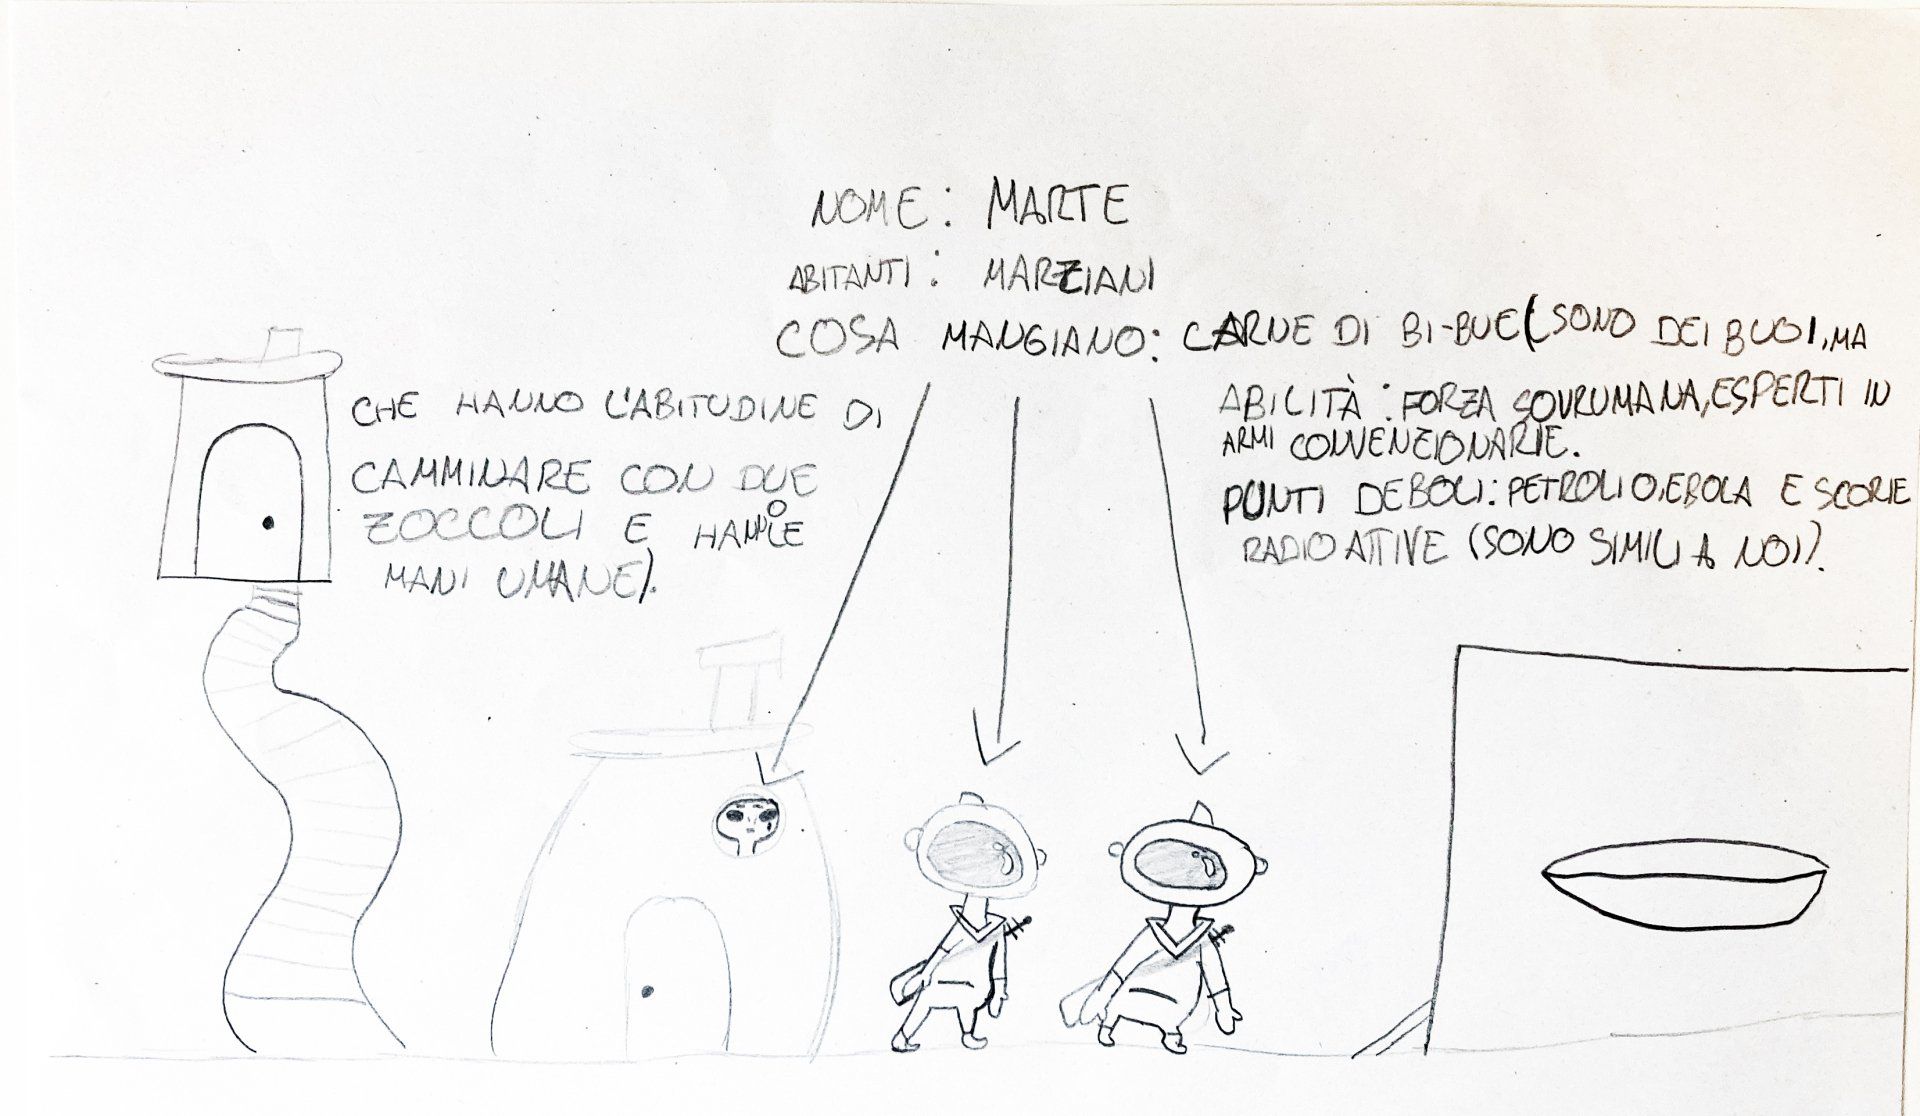 NOME: MARTE
ABITANTI: MARZIANI
COSA MANGIANO: CARNE DI BI-BUE (SONO DEI BUOI, MA
CHE HANNO L'ABITUDINE DI
CAMMINARE CON DUE
ZOCCOLI E HANNO LE
MANI UMANE).
ABILITÀ: FORZA SOVRUMANA, ESPERTI IN
ARMI CONVENZIONARIE.
PUNTI DEBOLI: PETROLIO, EBOLA E SCORIE
RADIOATTIVE (SONO SIMILI A NOI).